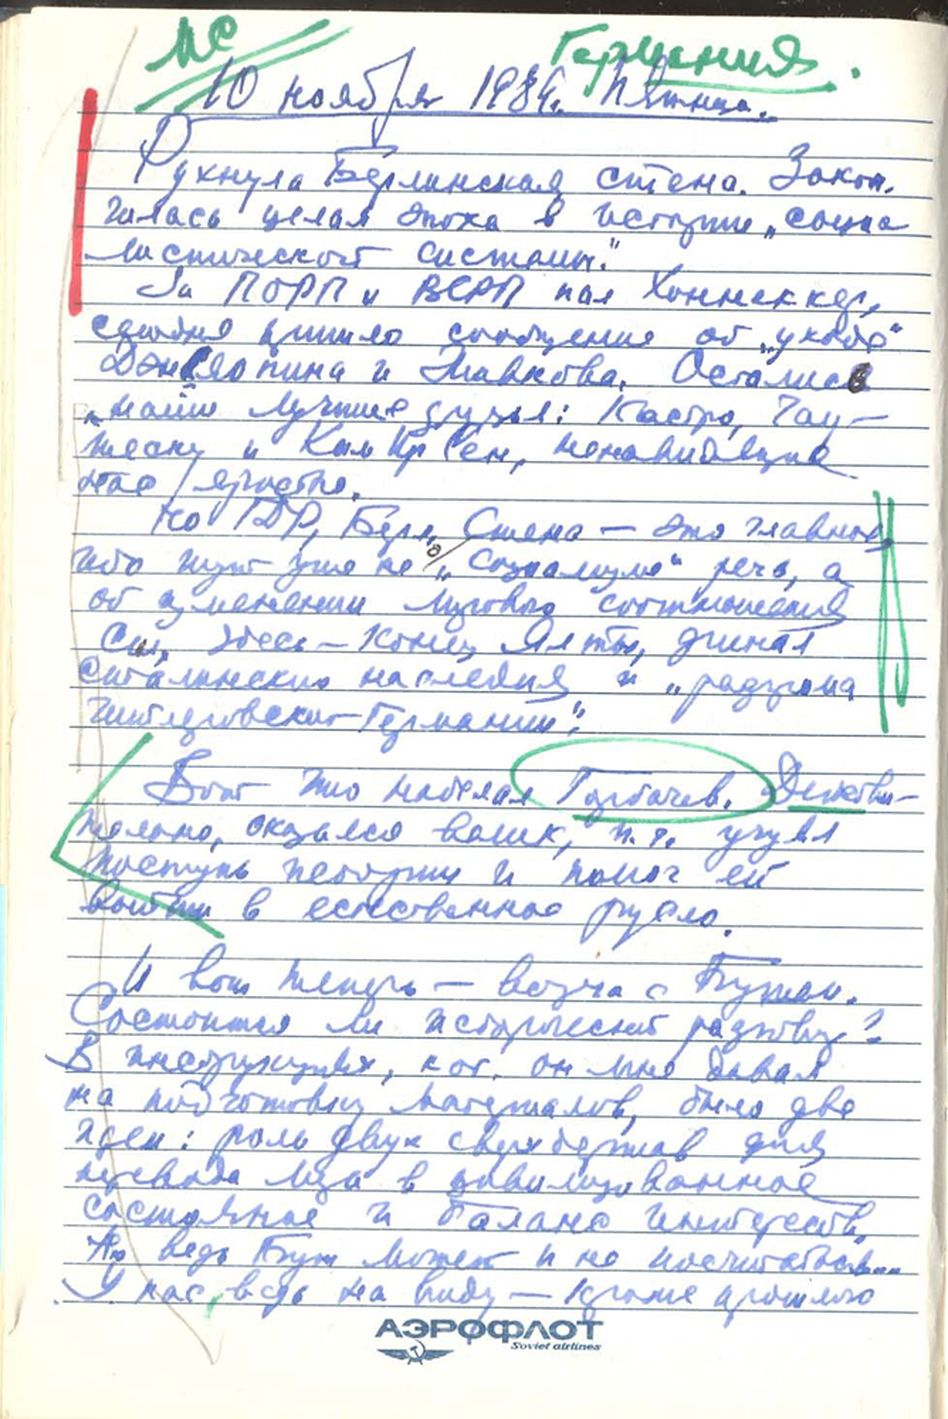 МС
Германия.
10 ноября 1989г. Пятница.
Рухнула Берлинская стена. Закон-
чилась целая эпоха в истории „социа
листической системы".
За ПОРП и ВСРП пал Хоннеккер,
сегодня пришло сообщение об „уходе"
Дэн Сяо пина и Живкова. Остались
„наши лучшие друзья: Кастро, Чау-
шеску и Ким Ир Сен, ненавидящие
нас яростно.
Но ГДР, Берл. Стена – это главное,
ибо тут уже не о „социализме" речь, а
об изменении мирового соотношения
сил, здесь – конец Ялты, финал
сталинского наследия и „разгрома
гитлеровской Германии".
Вот что наделал Горбачев. Действи-
тельно, оказался велик, п.ч. учуял
поступь истории и помог ей
войти в естественное русло.
И вот теперь – встреча с Бушем.
Состоится ли исторический разговор?
В инструкциях, кот. он мне давал
на подготовку материалов, было две
идеи: роль двух сверхдержав для
перевода мира в цивилизованное
состояние и баланс интересов.
Но ведь Буш может и не посчитаться...
У нас ведь на виду – кроме прошлого
АЭРОФЛОТ
Soviet airlines